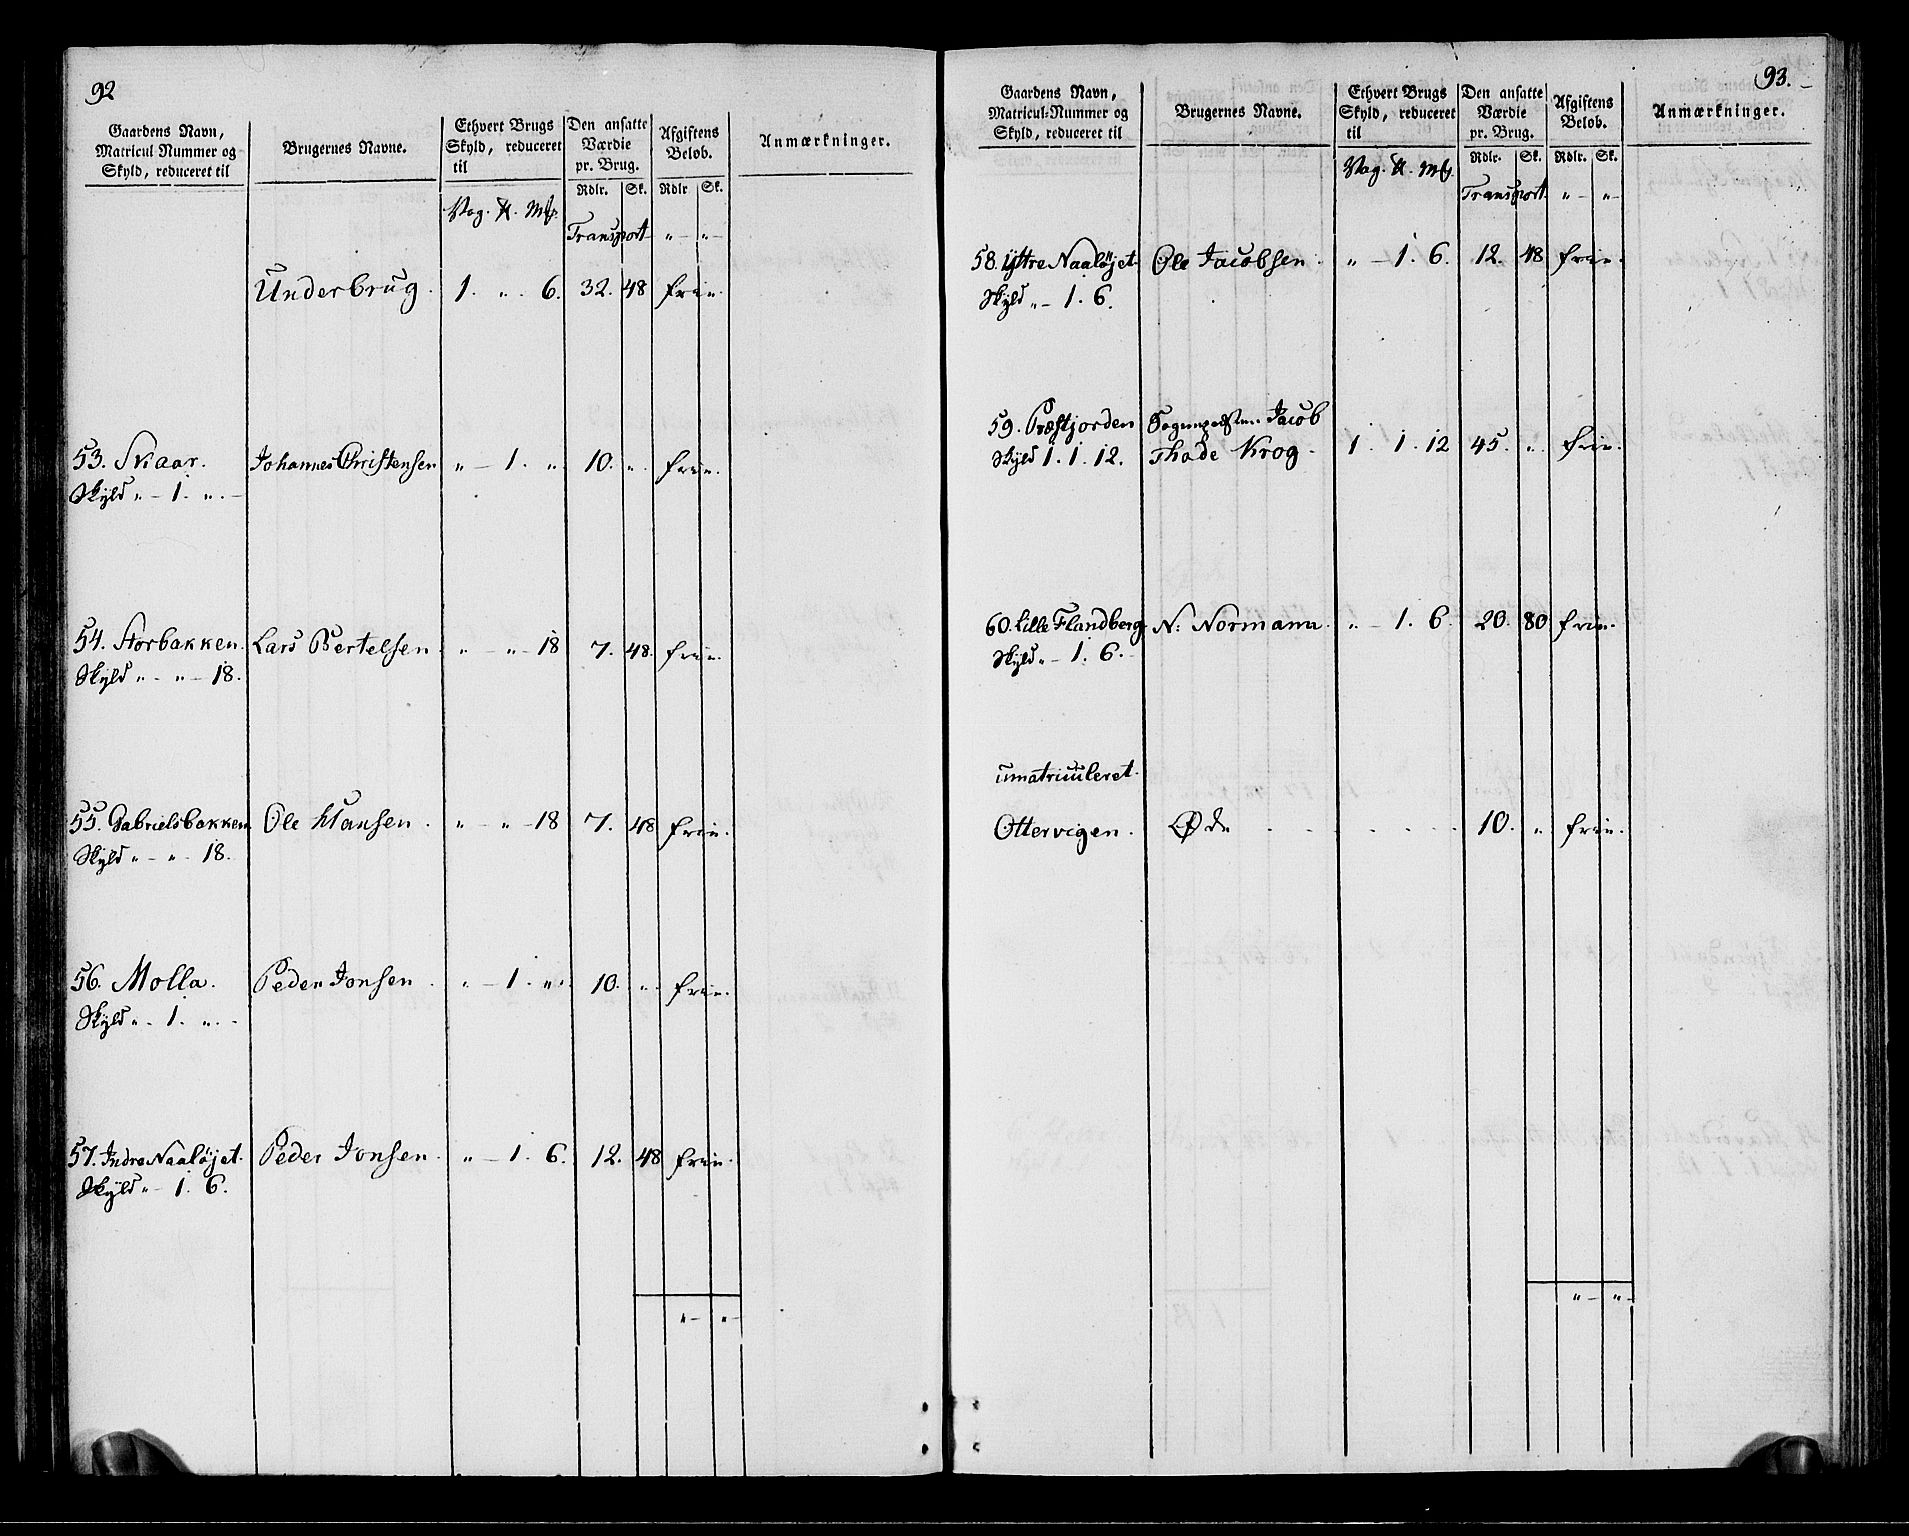 92
Gaardens Navn, Matricul Nummer og Skyld, reduceret til
Brugernes Navne.
Ethvert Brugs Skyld, reduceret til
Den ansatte Værdie pr. Brug.
Afgiftens Beløb.
Anmærkninger.
Rdlr. Sk. Rdlr Sk.
Vog. ℔. Mk.
Transport „ – „ –
Underbrug. 1. „ 6. 32. 48 frie.
53. Skaar. Johannes Christensen „ – 1. „. 10. „. frie.
Skyld „ – 1. „. –
54. Storbakken. Lars Bertelsen. „ – „ – 18 7. 48. frie.
Skyld „ – „ – 18.
55. Gabrielsbakken Ole Hansen. „ – „ – 18 7. 48 frie.
Skyld „ – „ – 18.
56. Molla. Peder Jonsen. „ – 1. „. 10. „. frie.
Skyld „ – 1. „. –
57. Indre Naaløjet. Peder Jonsen. „ – 1. 6. 12. 48 frie.
Skyld „ – 1. 6.
„ – „ –
93.
Gaardens Navn, Matricul-Nummer og Skyld, reduceret til
Brugernes Navne.
Ethvert Brugs Skyld, reduceret til
Den ansatte Værdie pr. Brug.
Afgiftens Beløb.
Anmærkninger.
Rdlr. Sk. Rdlr. Sk.
Vog. ℔. Mk.
Transport „ – „ –
58. Yttre Naaløjet. Ole Jacobsen. „ – 1. 6. 12. 48 frie.
Skyld „ – 1. 6.
59. Præstjorden Sognepræsten Jacob
Skyld 1. 1. 12. Thode Krog. 1. 1. 12 45. „. frie.
60. Lille Flandberg N: Normann. „ – 1. 6. 20. 80 frie.
Skyld „ – 1. 6. –
umatriculeret.
Ottervigen. Øde . . . . . . 10. „ frie.
„ – „ –